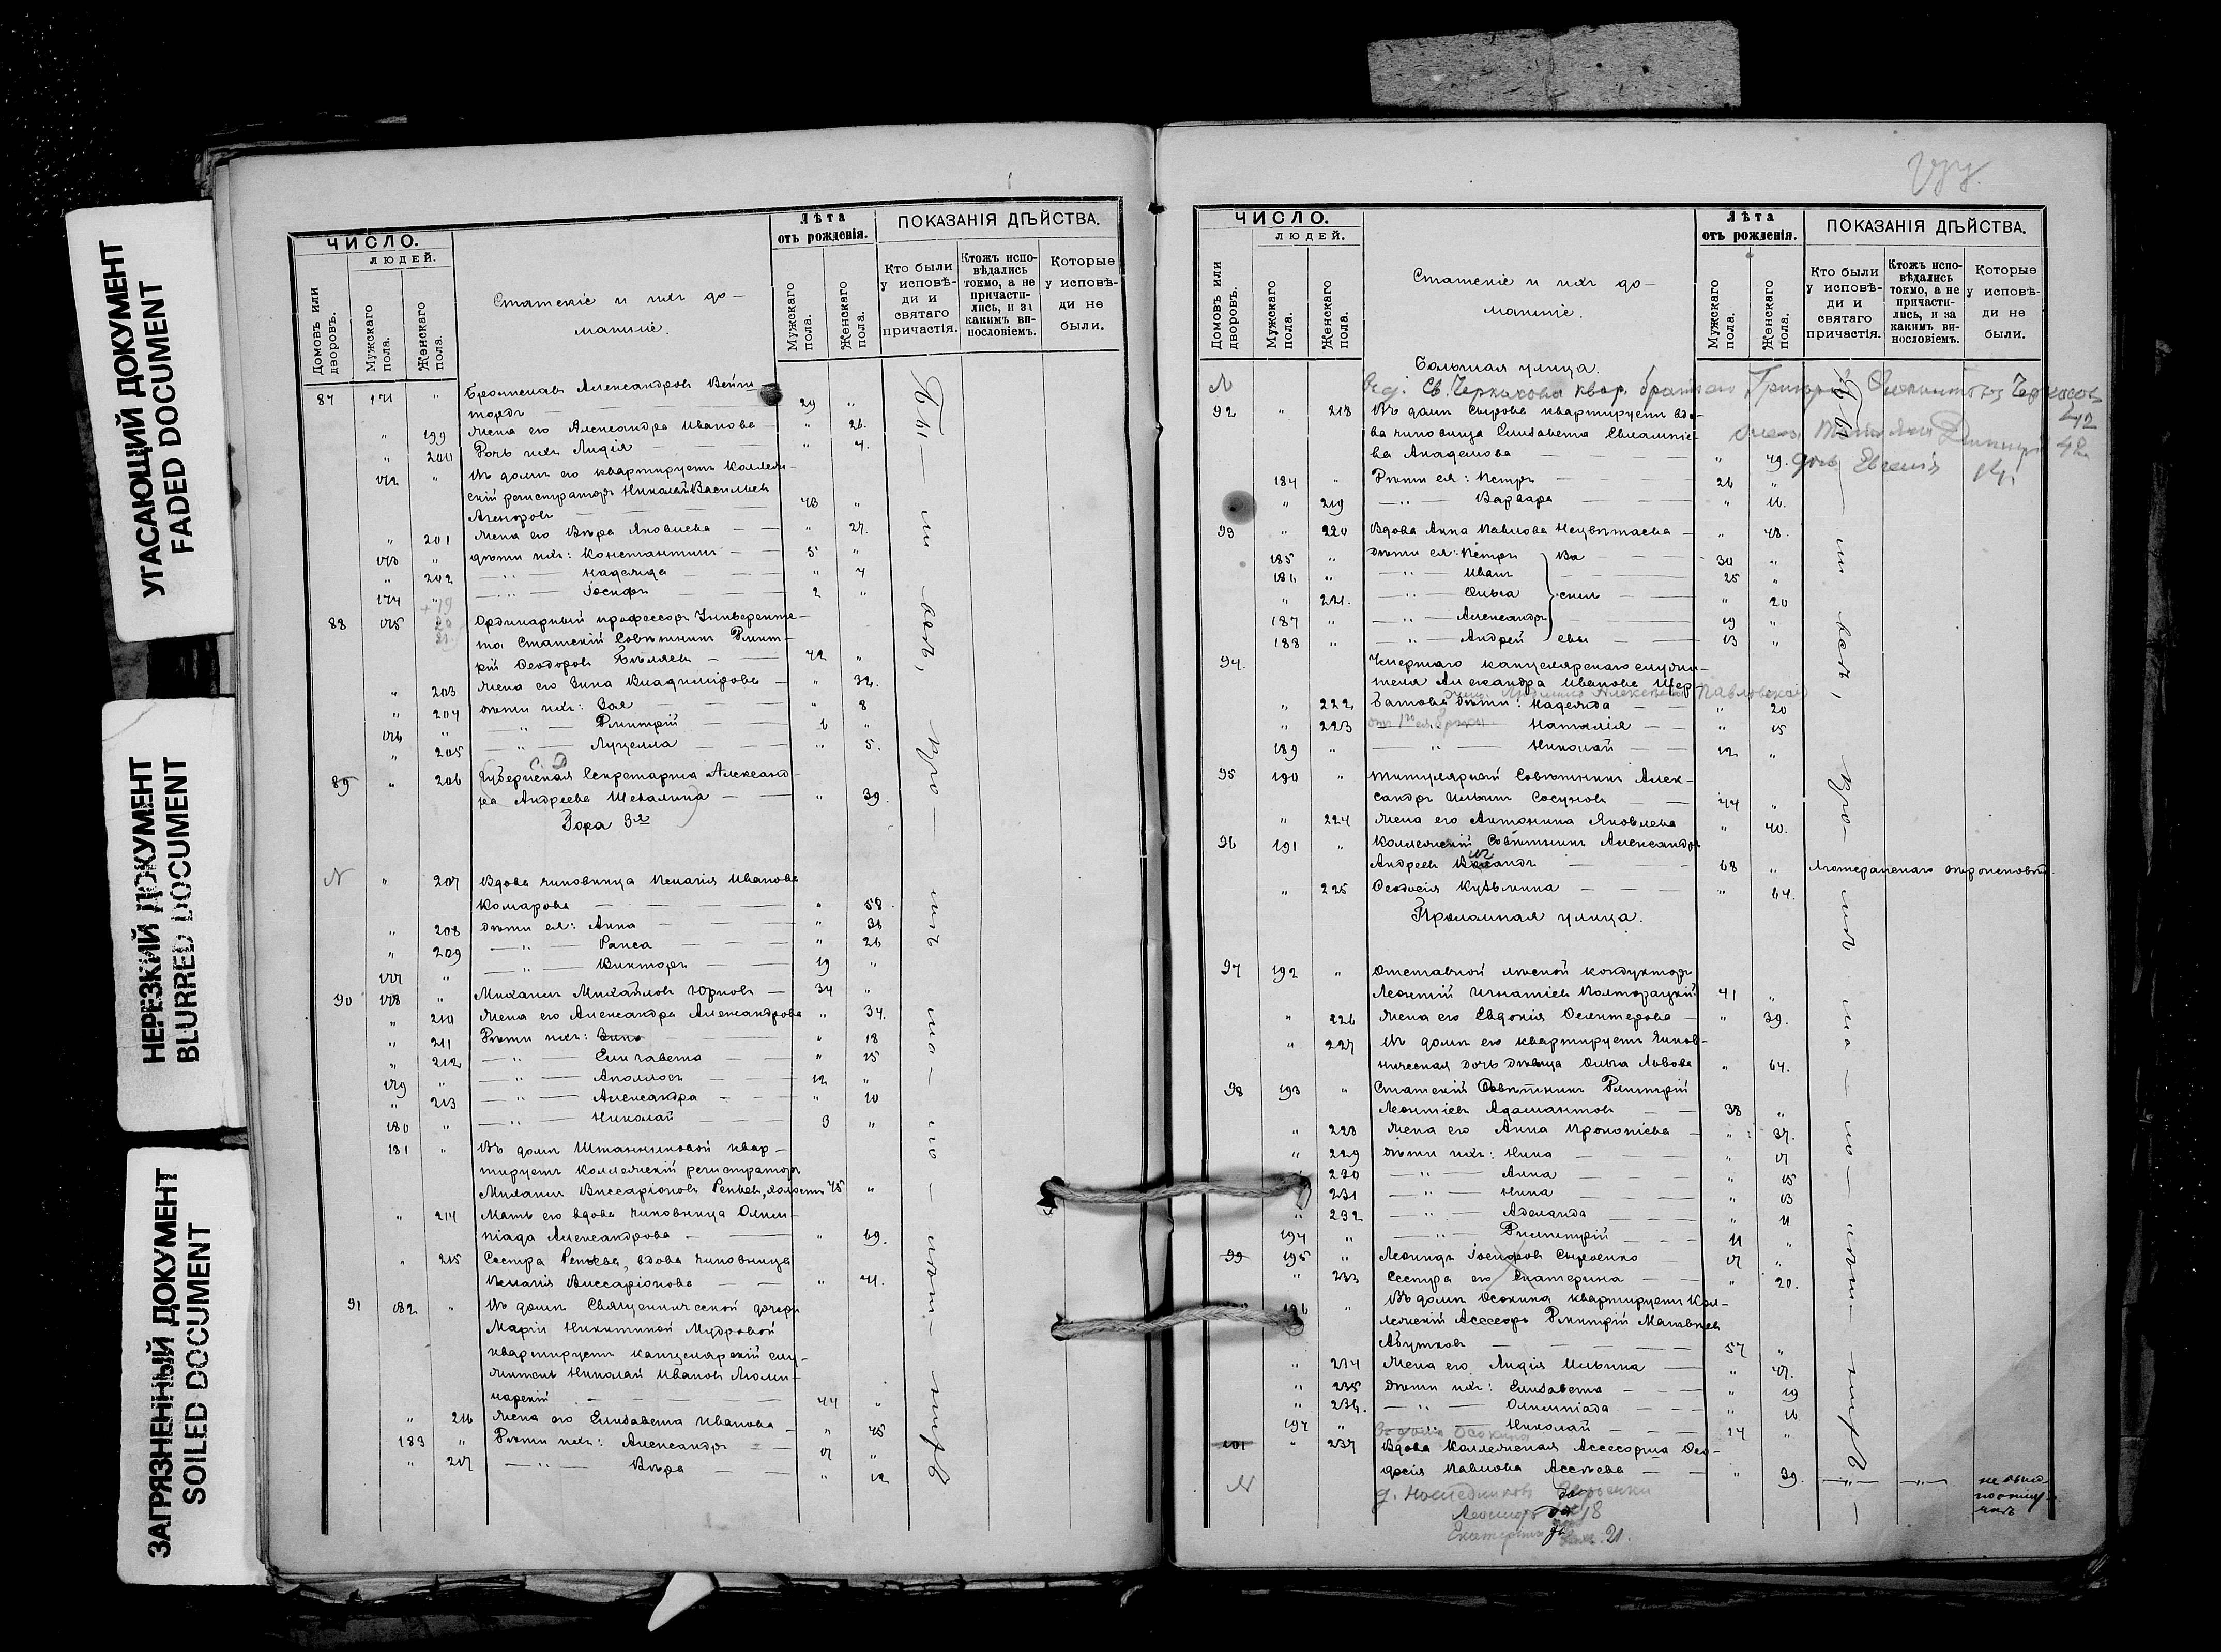 УГАСАЮЩИЙ ДОКУМЕНТ
FADED DOCUMENT
НЕРЕЗКИЙ ДОКУМЕНТ
BLURRED DOCUMENT
ЗАГРЯЗНЕННЫЙ ДОКУМЕНТ
SOILED DOCUMENT
ЧИСЛО.
ЛЮДЕЙ.
Домовъ или дворовъ.
Мужскаго пола.
Женскаго пола.
Статскіе и ихъ до-
машніе.
Лѣта
отъ рожденія.
Мужскаго пола.
Женскаго пола.
ПОКАЗАНІЯ ДѢЙСТВА.
Кто были у исповѣ-ди и святаго причастія.
Ктожъ испо-вѣдались токмо, а не причасти-лись, и за какимъ ви-нословіемъ.
Которые у исповѣ-ди не были.
87 171 " Брониславъ Александровъ
29 "
" 199 Жена его Александра Иванова — " 26.
" 200 Дочь ихъ Лидія — " 4.
172 " Въ домѣ его квартируетъ Коллеж-
скій регистраторъ Николай Васильевъ
43 "
" 201 Жена его Вѣра Яковлева — " 27.
173 " дѣти ихъ: Константинъ — 5 "
" 202 — " — Надежда — " 4
174 " — " — Іосифъ — 2 "
88 175 Ординарный профессоръ Университе-
та Статскій Совѣтникъ Дмит-
рій Ѳеодоровъ Бѣляевъ — 42 "
" 203 Жена его Зина Владимірова — " 32.
" 204 дѣти ихъ: Зоя " 8
176 " — " — Дмитрій — 6 "
" 205 — " — Луцелла — " 5.
89 " 206 Губернская Секретарша Александ-
ра Андреева Шевалина — " 39.
Гора 3-я
N " 207 Вдова чиновница Пелагія Иванова
Комарова — " 58.
" 208 дѣти ея: Анна " 31
" 209 — " — Раиса — " 26
177 " — " — Викторъ — 19 "
90 178 " Михаилъ Михайловъ Юрновъ — 34 "
" 210 Жена его Александра Александрова " 34.
" 211 Дѣти ихъ: Зина " 18
" 212 — " — Елизавета — " 15
179 " — " — Аполлосъ — 12 "
" 213 — " — Александра — " 10
180 " — " — Николай 9 "
181 " Въ домѣ Штанниковой квар-
тируетъ Коллежскій регистраторъ
Михаилъ Виссаріоновъ Репьевъ, холостъ 45 "
" 214 Мать его вдова чиновница Олим-
піада Александрова — " 69.
" 215 Сестра Репьева, вдова чиновница
Пелагія Виссаріонова — " 41.
91 182 " Въ домѣ Священнической дочери
Маріи Никитиной Мудровой
квартируетъ канцелярскій слу-
житель Николай Ивановъ Люми-
нарскій — 44 "
" 216 Жена его Елизавета Иванова " 45
183 " Дѣти ихъ: Александръ — 17 "
" 217 — " — Вѣра — " 12
ЧИСЛО.
ЛЮДЕЙ.
Домовъ или дворовъ.
Мужскаго пола.
Женскаго пола.
Статскіе и ихъ до-
машніе.
Лѣта
отъ рожденія.
Мужскаго пола.
Женскаго пола.
ПОКАЗАНІЯ ДѢЙСТВА.
Кто были у исповѣ-ди и святаго причастія.
Ктожъ испо-вѣдались токмо, а не причасти-лись, и за какимъ ви-нословіемъ.
Которые у исповѣ-ди не были.
Большая улица.
N
92 " 218 Въ домѣ Сырова квартируетъ вдо-
ва чиновница Елизавета Евлампіе-
ва Академова — " 49.
дочь Евгенія 14
184 " Дѣти ея: Петръ — 26 "
" 219 — " — Варвара — " 16.
93 " 220 Вдова Анна Павлова Нецвѣтаева — " 48.
185 " дѣти ея: Петръ Ва 30 "
186 " — " — Иванъ 25 "
" 221. — " — Ольга силь " 20
187 " — " — Александръ 19 "
188 " — " — Андрей евы — 13 "
94. Умершаго канцелярскаго служи-
теля Александра Иванова Щер-
" 222 батова дѣти: Надежда — " 20
" 223 Наталія — " 15
189 " — " — Николай — 12 "
95 190 " Титулярный Совѣтникъ Алек-
сандръ Ильинъ Сосуновъ — 44 "
" 224 Жена его Антонина Яковлева " 40.
96 191 " Коллежскій Совѣтникъ Александръ
Андреевъ — 68 " Лютеранскаго вѣроисповѣд.
" 225 Ѳеодосія Кузьмина — " 64.
Проломная улица.
97 192 " Отставной лѣсной кондукторъ
Леонтій Игнатіевъ Полторацкій 41 "
" 226 Жена его Евдокія Елевтерова — " 39.
" 227 Въ домѣ его квартируетъ чинов-
ническая дочь дѣвица Ольга Львова " 64.
98 193 " Статскій Совѣтникъ Дмитрій
Леонтіевъ Адамантовъ — 38 "
" 228 Жена его Анна Прокопіева — " 37.
" 229 дѣти ихъ: Нина — " 17
" 230 — " — Анна — " 15
" 231 — " — Нина — " 13
" 232 — " — Аделаида — " 11
194 " — " — Димитрій — 11 "
99 195 " Леонидъ Іосифовъ 17 "
" 233 Сестра его Екатерина — " 20.
196 " Въ домѣ Осокина квартируетъ Кол-
лежскій Ассесоръ Дмитрій Матвѣевъ
Абутковъ — 57 "
" 234 Жена его Лидія Ильина — " 47.
" 235 дѣти ихъ: Елизавета — " 19
" 236. — " — Олимпіада — " 16
197 " — " — Николай — 14 "
Въ домѣ Осокина
101 " 237 Вдова Коллежская Ассесорша Ѳео-
досія Павлова Ассѣева — " 39. — " — — " —
N д. Наслѣдниковъ
Леонидъ 18
Екатерина 21.